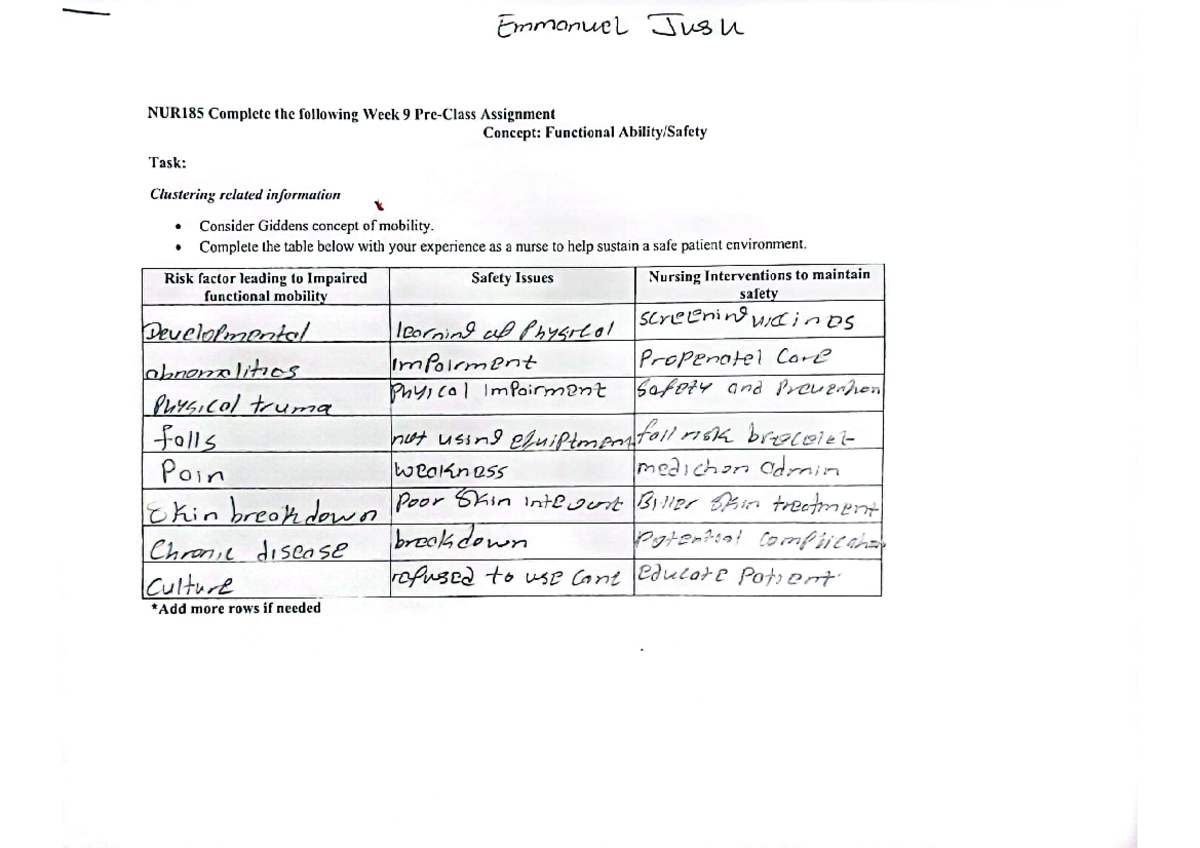 Emmanuel Jusu
NUR185 Complete the following Week 9 Pre-Class Assignment
Concept: Functional Ability/Safety
Task:
Clustering related information
• Consider Giddens concept of mobility.
• Complete the table below with your experience as a nurse to help sustain a safe patient environment.
Risk factor leading to Impaired functional mobility | Safety Issues | Nursing Interventions to maintain safety
Developmental | learning Physical | screening
abnomalities | Impairment | Care
Physical truma | Phyical Impairment | Safety and Prevention
falls | not using equiptment | fall risk bracelet
Pain | Weakness | admin
Skin breakdown | Poor Skin | Skin treatment
Chronic disease | breakdown | Potential
Culture | refused to use | educate Patient
*Add more rows if needed